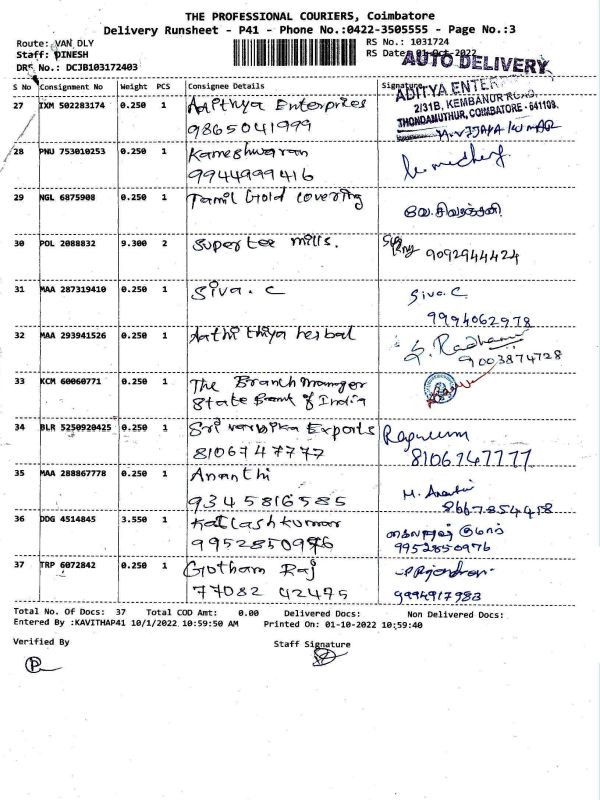 THE PROFESSIONAL COURIERS, Coimbatore
Delivery Runsheet - P41 - Phone No.:0422-3505555 - Page No.:3
Route: VAN_DLY
RS No.: 1031724
Staff: DINESH
RS Date: 01-Oct-2022
AUTO DELIVERY
DRS No.: DCJB103172403
S No Consignment No Weight PCS Consignee Details Signature
ADITYA ENTER
2/31B, KEMBANUR ROAD,
THONDAMUTHUR, COIMBATORE - 641109.
27 IXM 502283174 0.250 1 Aadithya Enterprises
9865041999
28 PNU 753010253 0.250 1 Kameshwaran
9944999416
29 NGL 6875908 0.250 1 Tamil Gold covering
30 POL 2088832 9.300 2 Super tee mills. 9092944424
31 MAA 287319410 0.250 1 Siva. C Siva. C
9994062978
32 MAA 293941526 0.250 1 Aathithiya herbal
9003874728
33 KCM 60060771 0.250 1 The Branch manager
State Bank of India
34 BLR 5250920425 0.250 1 Exports
8106747777 8106747777
35 MAA 288867778 0.250 1 Ananthi
9345816585 8667854418
36 DDG 4514845 3.550 1 Kailash kumar
9952850976 9952850976
37 TRP 6072842 0.250 1 Gotham Raj
77082 42475 9994917983
Total No. Of Docs: 37 Total COD Amt: 0.00 Delivered Docs: Non Delivered Docs:
Entered By :KAVITHAP41 10/1/2022 10:59:50 AM Printed On: 01-10-2022 10:59:40
Verified By Staff Signature